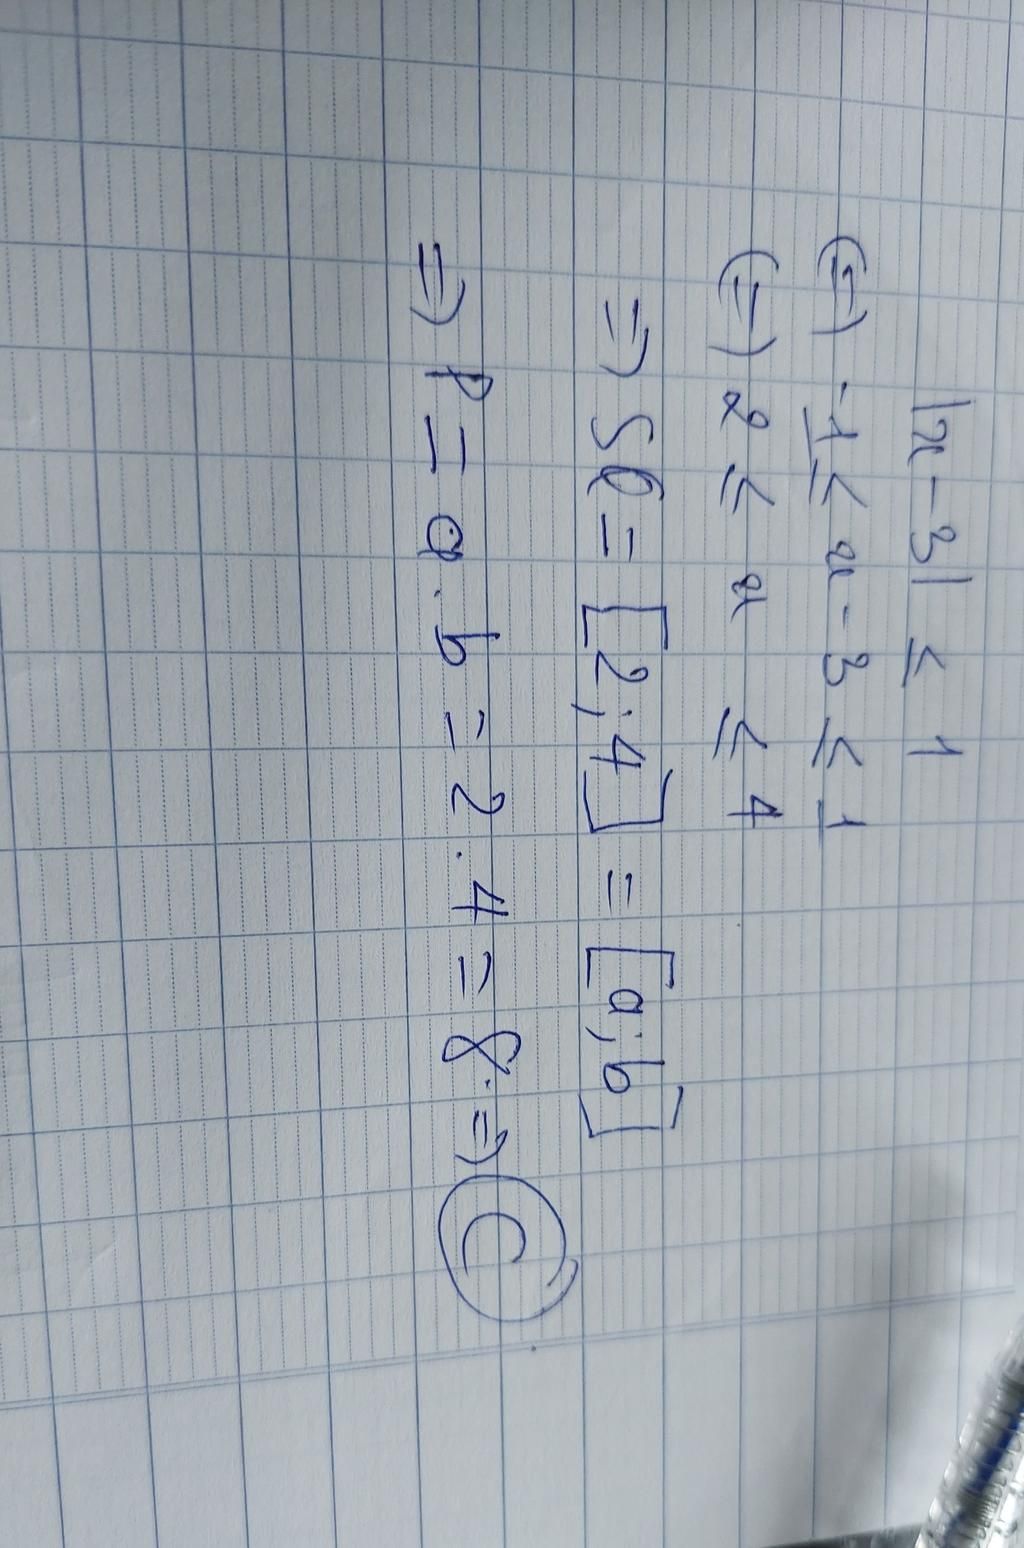 |x-3| ≤ 1
(=) -1 ≤ x-3 ≤ 1
(=) 2 ≤ x ≤ 4
=) Sℓ = [2;4] = [a;b]
=) P = a.b = 2.4 = 8. =) C